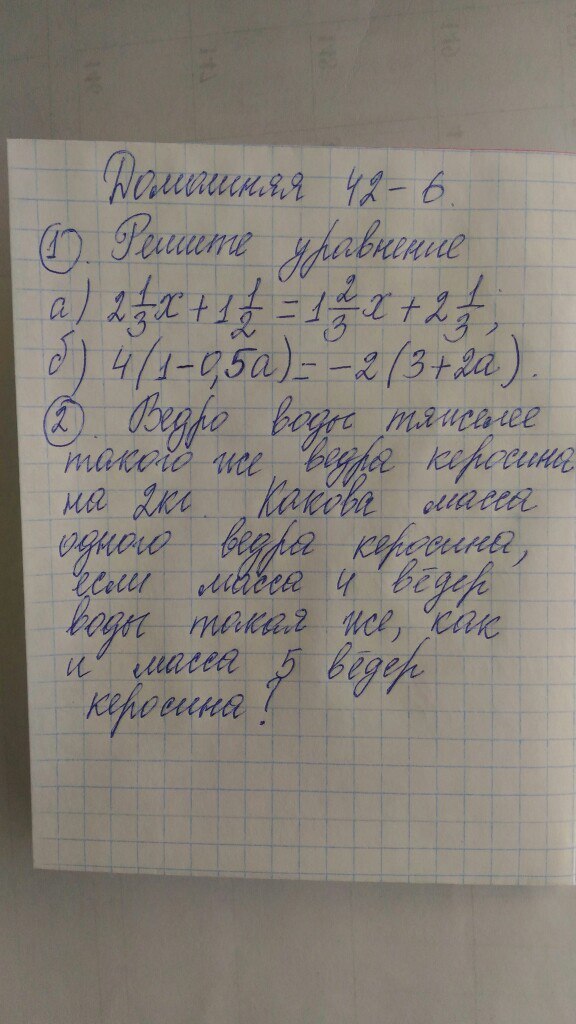 Домашняя 42-6.
① Решите уравнение
а) 2 1/3 x + 1 1/2 = 1 2/3 x + 2 1/3;
б) 4(1-0,5a) = -2(3+2a).
② Ведро воды тяжелее
такого же ведра керосина
на 2кг. Какова масса
одного ведра керосина,
если масса 4 вёдер
воды такая же, как
и масса 5 вёдер
керосина?